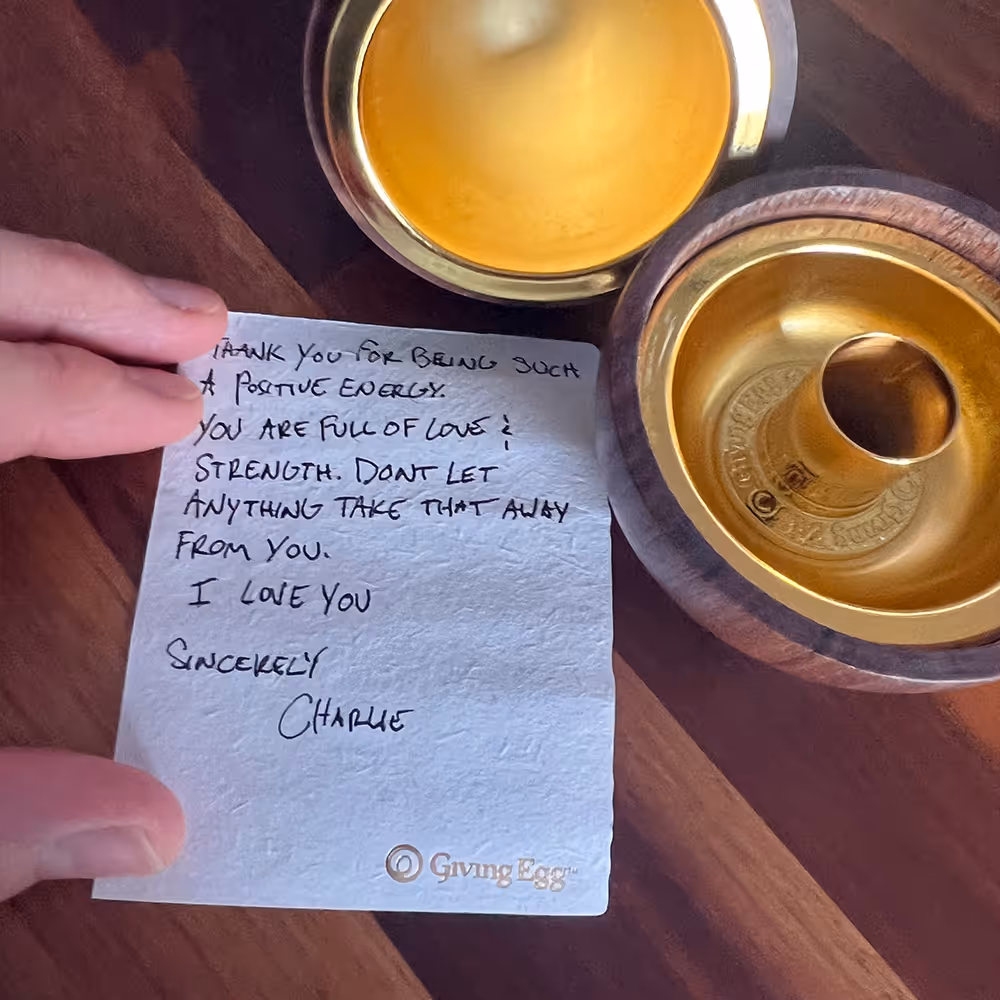 THANK YOU FOR BEING SUCH
A POSITIVE ENERGY.
YOU ARE FULL OF LOVE &
STRENGTH. DONT LET
ANYTHING TAKE THAT AWAY
FROM YOU.
I LOVE YOU
SINCERELY
CHARLIE
Giving Egg™